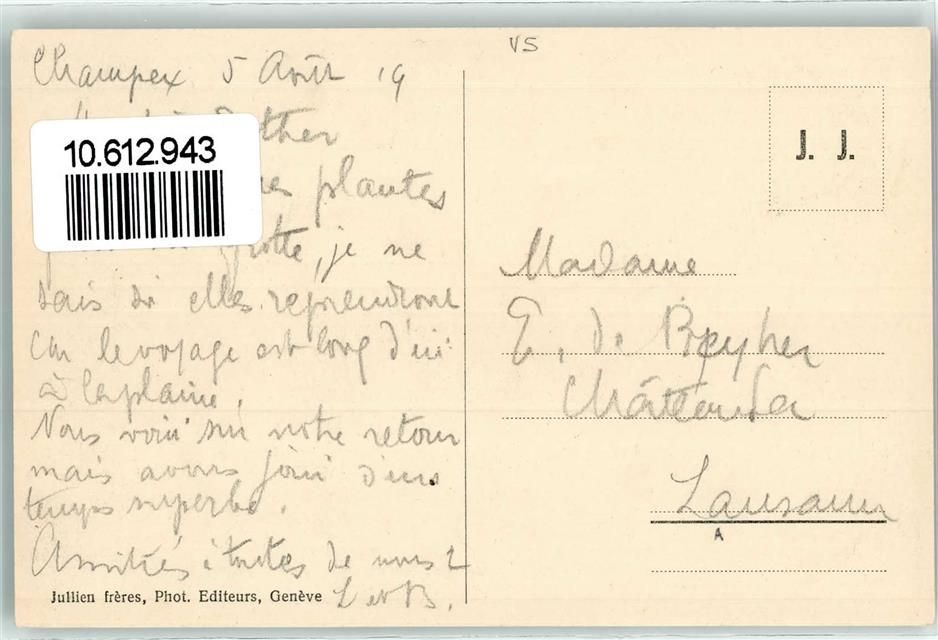 VS
Champex 5 Août 19
ther
10.612.943
plantes
grotte, je ne
sais si elles reprendront
car le voyage est long d'ici
à la plaine.
Nous voici sur notre retour
mais avons joui d'un
temps superbe.
Amitiés à toutes de nous 2
L et B.
Jullien frères, Phot. Editeurs, Genève
J. J.
Madame
E. de
Lausanne
A